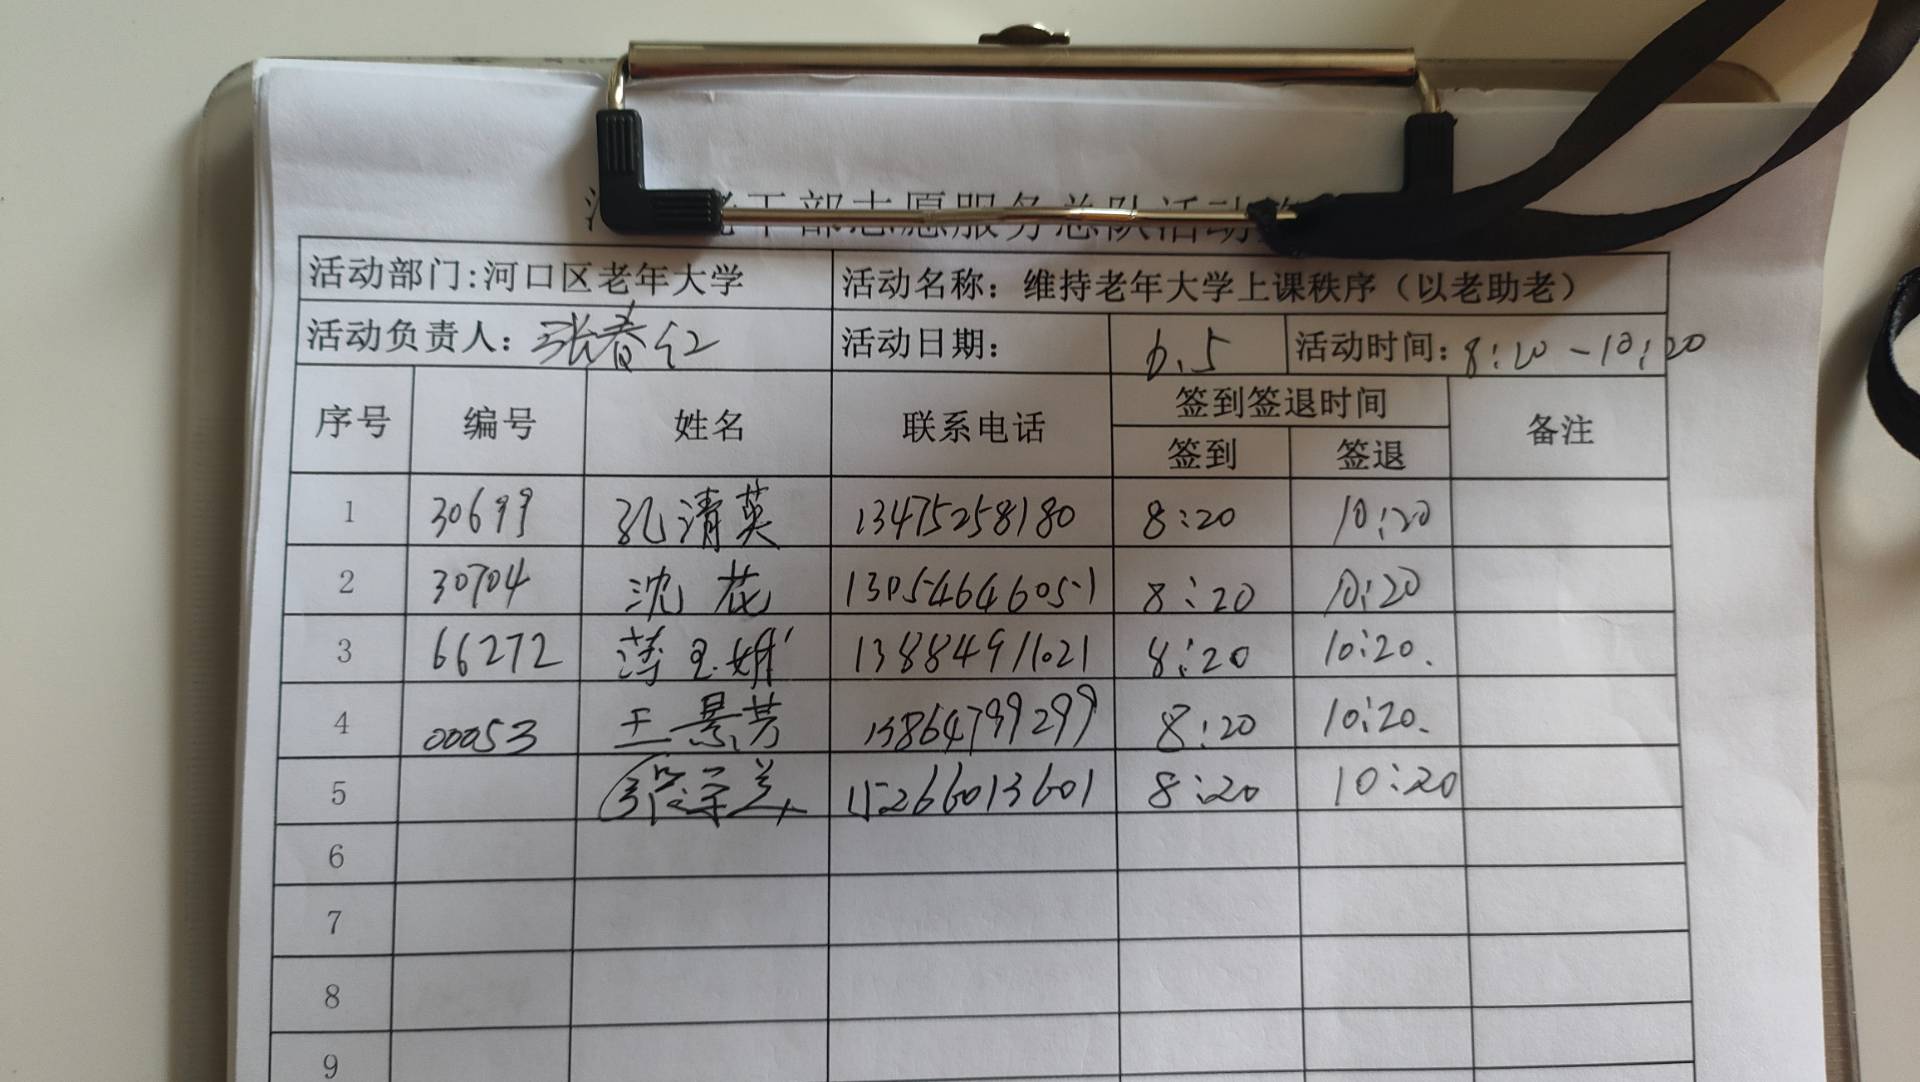 老干部志愿服务总队活动
活动部门:河口区老年大学 活动名称：维持老年大学上课秩序（以老助老）
活动负责人：张春红 活动日期： 6.5 活动时间：8:20-10:20
序号 编号 姓名 联系电话 签到签退时间 备注
签到 签退
1 30699 孔清英 13475258180 8:20 10:20
2 30704 沈花 13054646051 8:20 10:20
3 66272 薄玉娥 13884911021 8:20 10:20.
4 00053 王景芳 13864799299 8:20 10:20.
5 15266013601 8:20 10:20
6
7
8
9